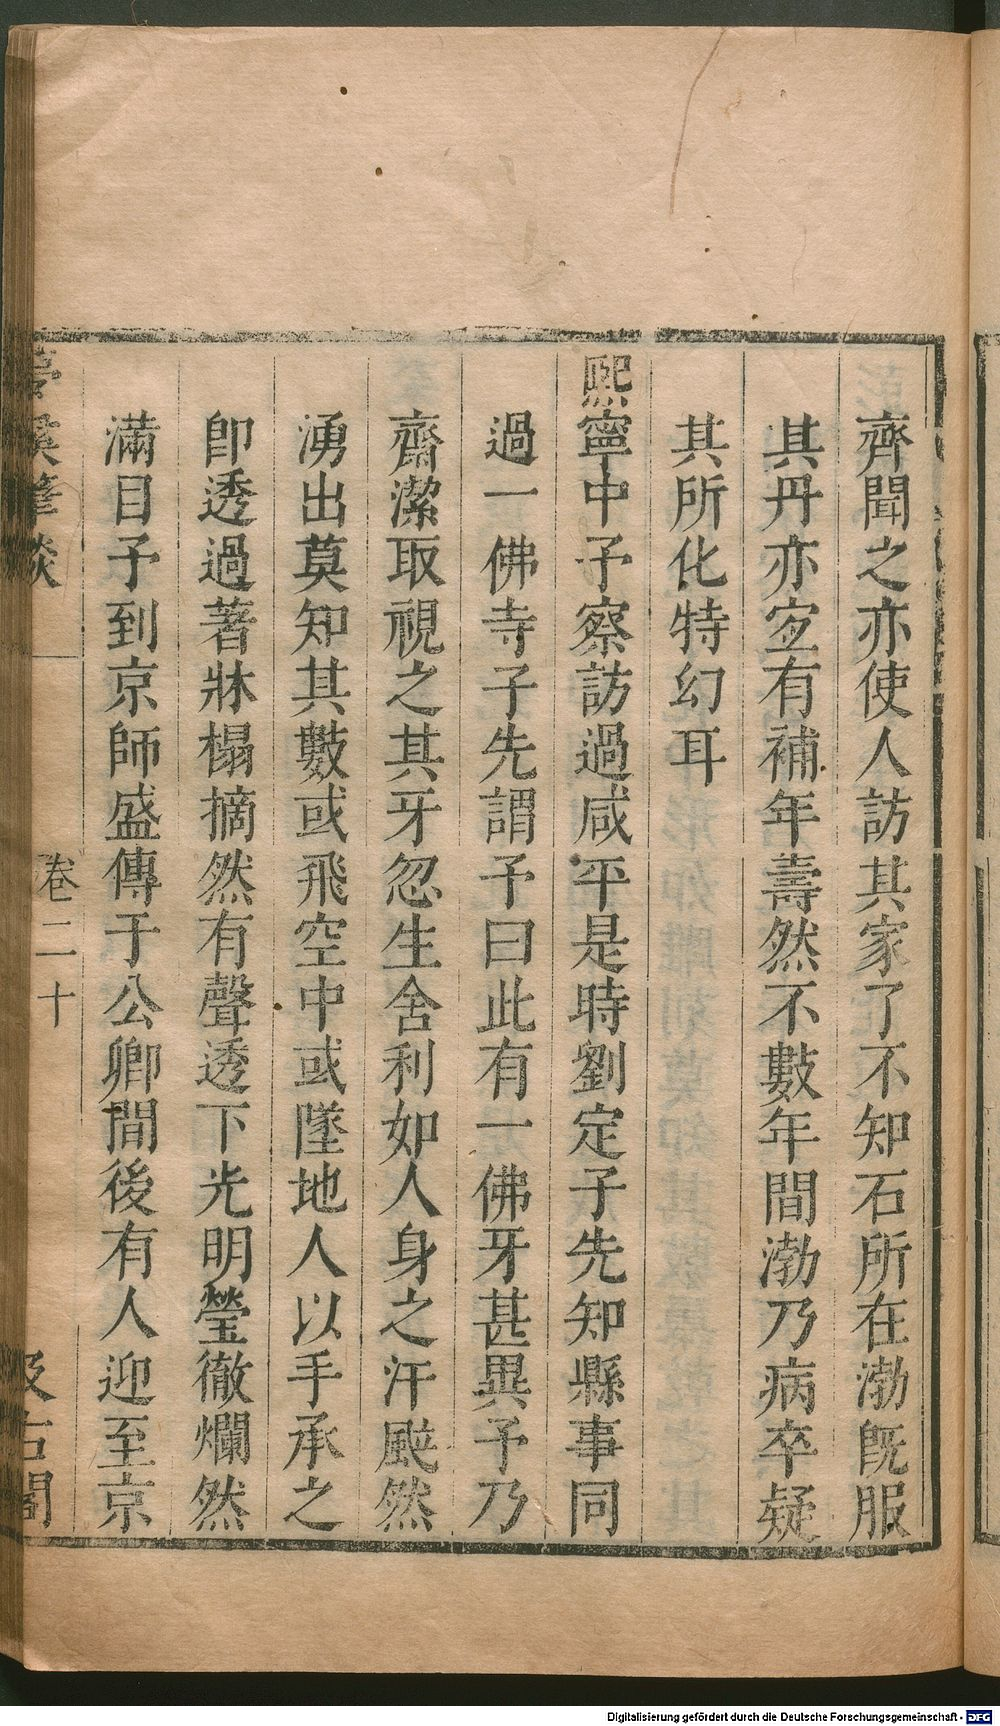 齊聞之亦使人訪其家了不知石所在渤旣服
其丹亦宐有補年壽然不數年間渤乃病卒疑
其所化特幻耳
熙寧中予察訪過咸平是時劉定子先知縣事同
過一佛寺子先謂予曰此有一佛牙甚異予乃
齋潔取視之其牙忽生舍利如人身之汗颰然
湧出莫知其數或飛空中或墜地人以手承之
卽透過著牀榻摘然有聲透下光明瑩徹爛然
滿目予到京師盛傳于公卿間後有人迎至京
夢溪筆談
卷二十
汲古閣
Digitalisierung gefördert durch die Deutsche Forschungsgemeinschaft - DFG